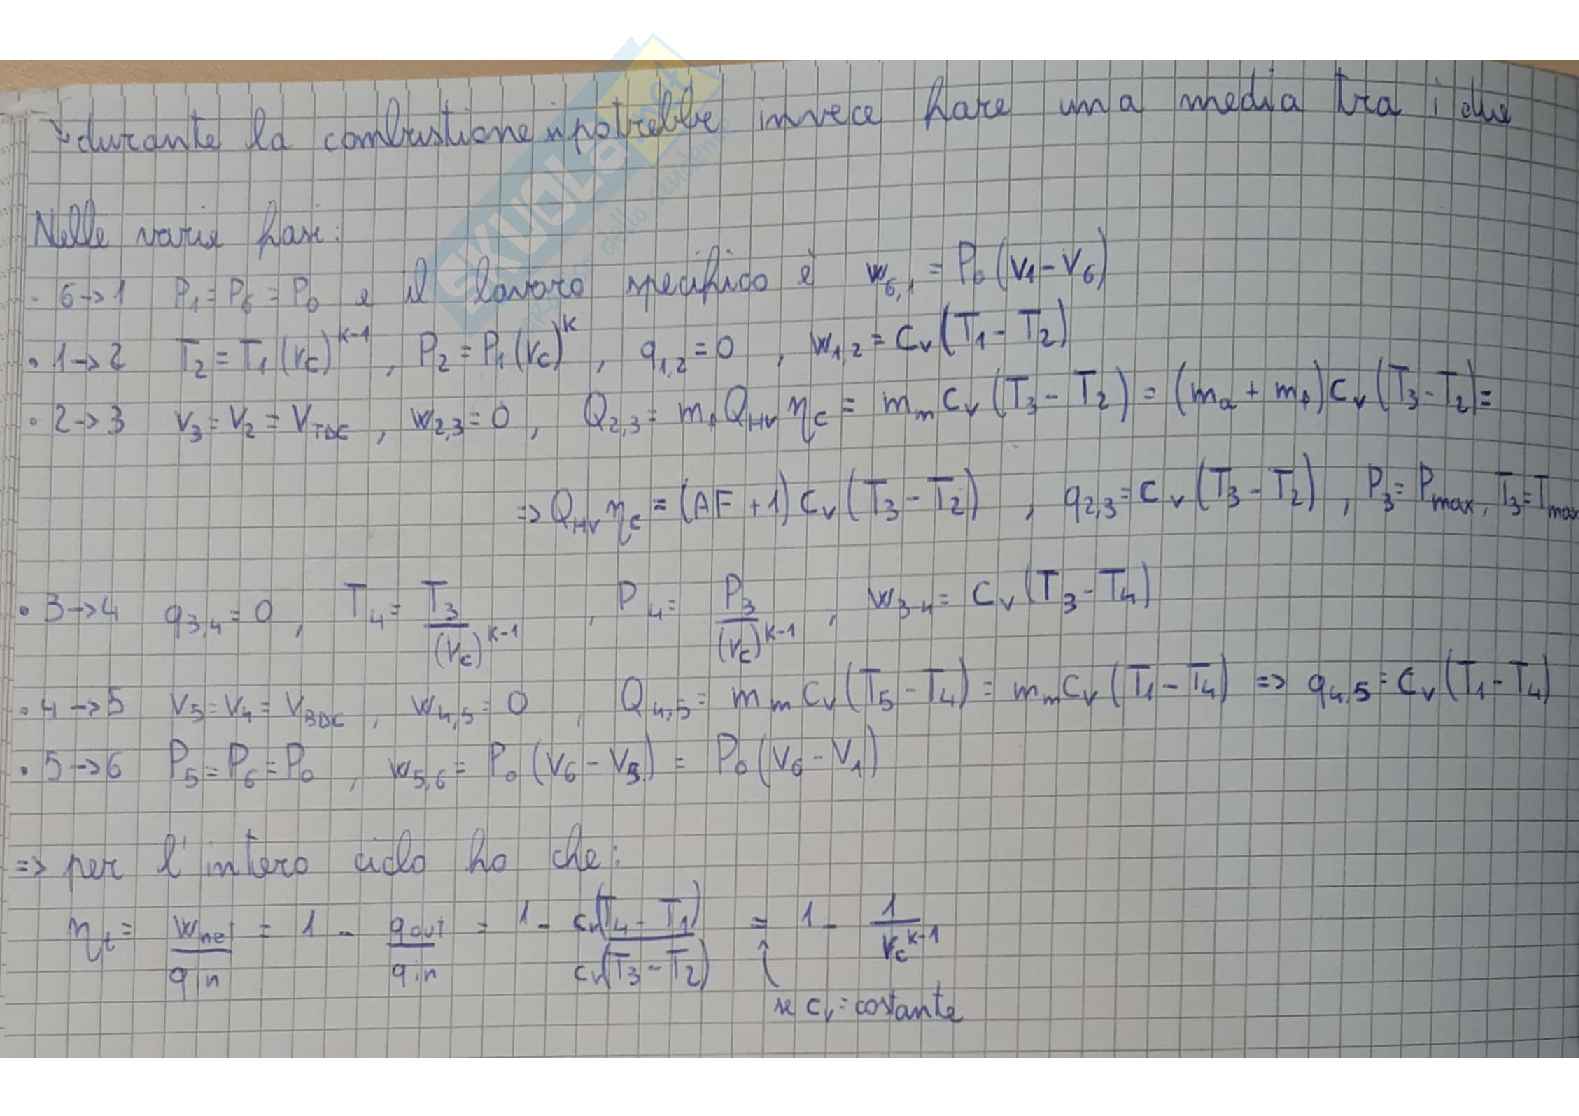 durante la combustione si potrebbe invece fare una media tra i due
Nelle varie fasi:
· 6→1 P₁=P₆=P₀ e il lavoro specifico è w₆,₁ = P₀(v₁-v₆)
· 1→2 T₂=T₁(r_c)^{k-1} , P₂=P₁(r_c)^k , q₁,₂=0 , w₁,₂=c_v(T₁-T₂)
· 2→3 v₃=v₂=v_TDC , w₂,₃=0 , Q₂,₃=m_f Q_HV η_c = m_m c_v (T₃-T₂) = (m_a+m_f)c_v(T₃-T₂)=
=> Q_HV η_c = (AF+1)c_v(T₃-T₂) , q₂,₃=c_v(T₃-T₂) , P₃=P_max, T₃=T_max
· 3→4 q₃,₄=0 , T₄= T₃/(r_c)^{k-1} , P₄= P₃/(r_c)^{k-1} , w₃₋₄= c_v(T₃-T₄)
· 4→5 v₅=v₄=v_BDC , w₄,₅=0 , Q₄,₅= m_m c_v(T₅-T₄) = m_m c_v(T₁-T₄) => q₄,₅=c_v(T₁-T₄)
· 5→6 P₅=P₆=P₀ , w₅,₆= P₀(v₆-v₅) = P₀(v₆-v₁)
=> per l'intero ciclo ho che:
η_t = w_net/q_in = 1 - q_out/q_in = 1 - c_v(T₄-T₁)/c_v(T₃-T₂) = 1 - 1/r_c^{k-1}
se c_v=costante